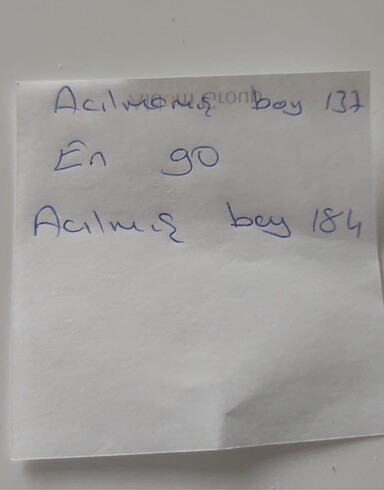 Acılmamış boy 137
En 90
Acılmış boy 184